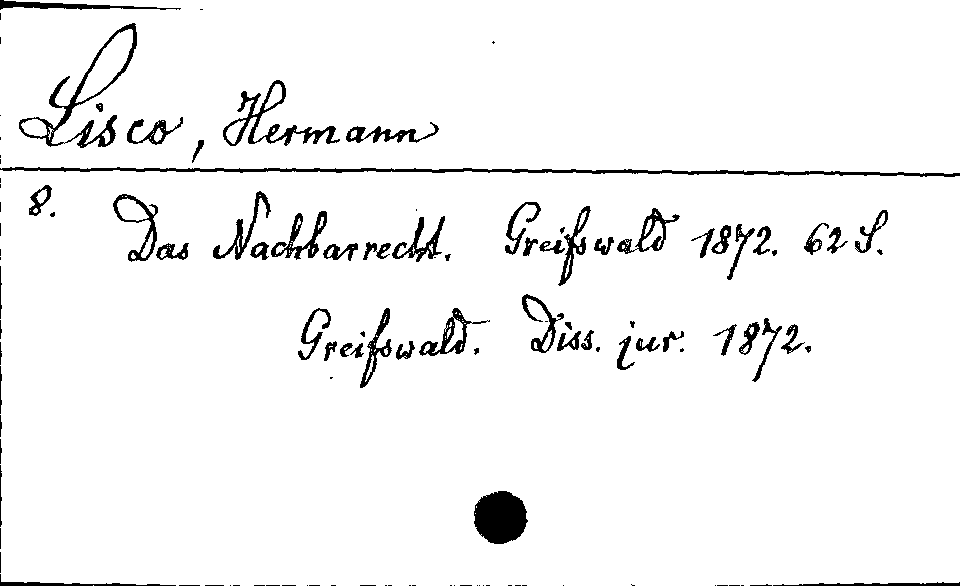 Lisco, Hermann
8. Das Nachbarrecht. Greifswald 1872. 62 S.
Greifswald. Diss. jur. 1872.